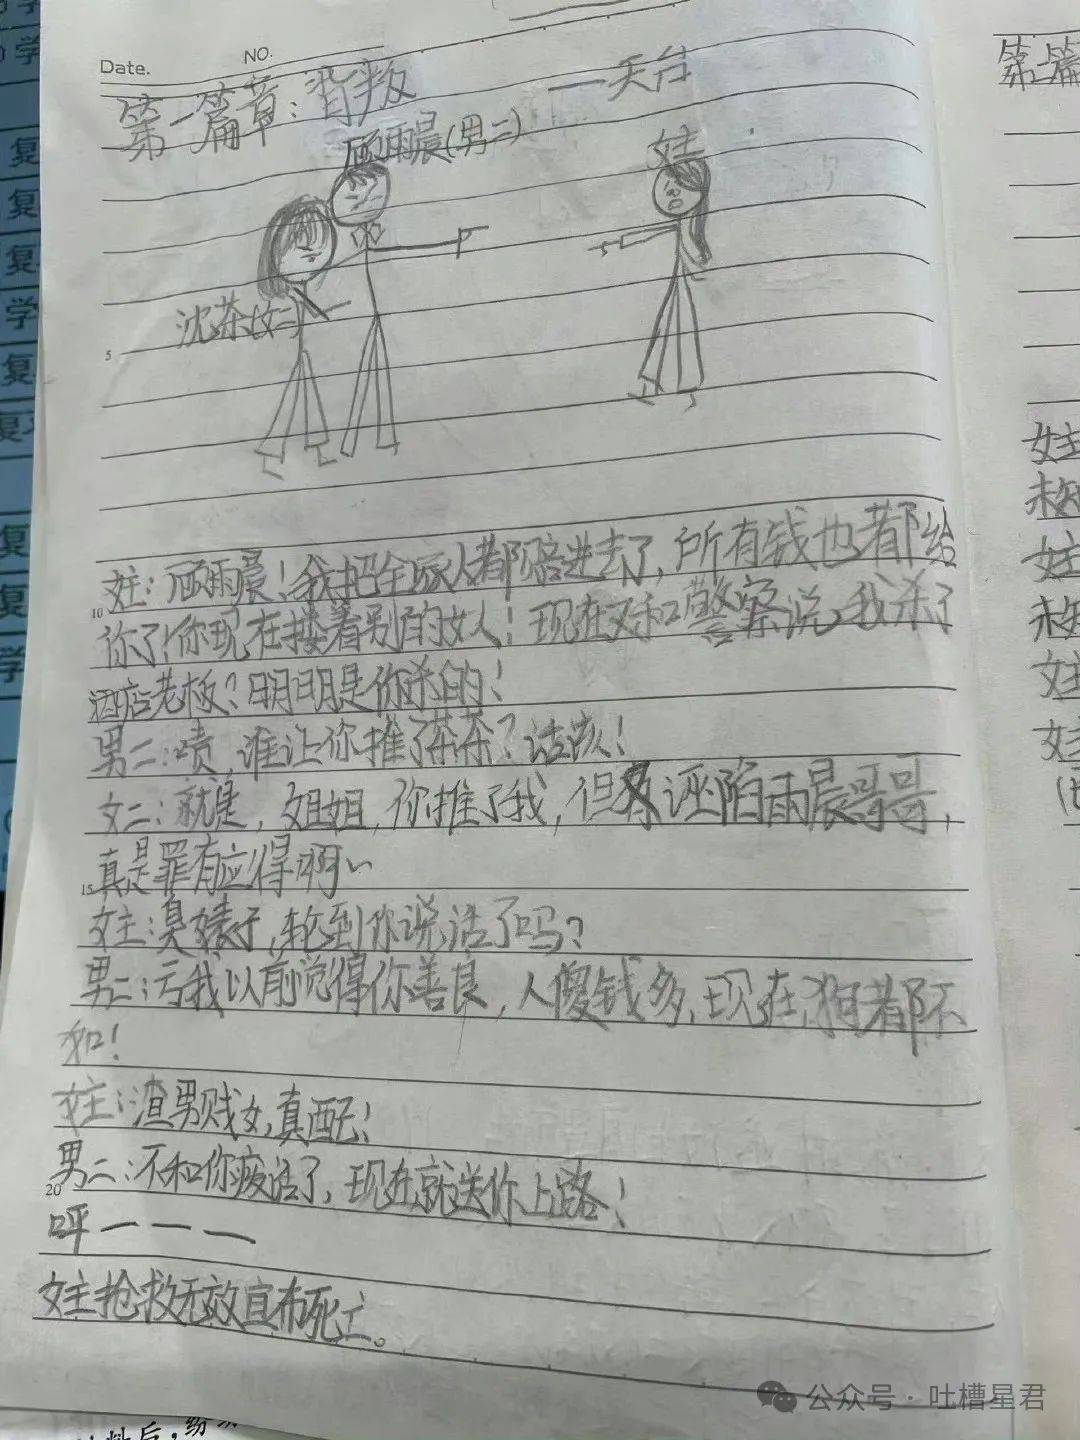 Date.
NO.
第一篇章：背叛
——天台
顾雨晨(男二)
女主
沈茶(女二)
5
女主：顾雨晨！我把全家人都陪进去了，所有钱也都给
10
你了！你现在搂着别的女人！现在又和警察说，我杀了
酒店老板？明明是你杀的！
男二：啧，谁让你推了茶茶？活该！
女二：就是，姐姐，你推了我，但诬陷雨晨哥哥，
15
真是罪有应得啊～
女主：臭婊子，轮到你说话了吗？
男二：亏我以前觉得你善良，人傻钱多，现在，狗都不
如！
女主：渣男贱女，真配！
男二：不和你废话了，现在就送你上路！
20
呯一一一
女主抢救无效宣布死亡。
第二篇
女主
未知
女主
未知
女主
女主
学
复
复
复
学
复
复
复
复
学
公众号·吐槽星君